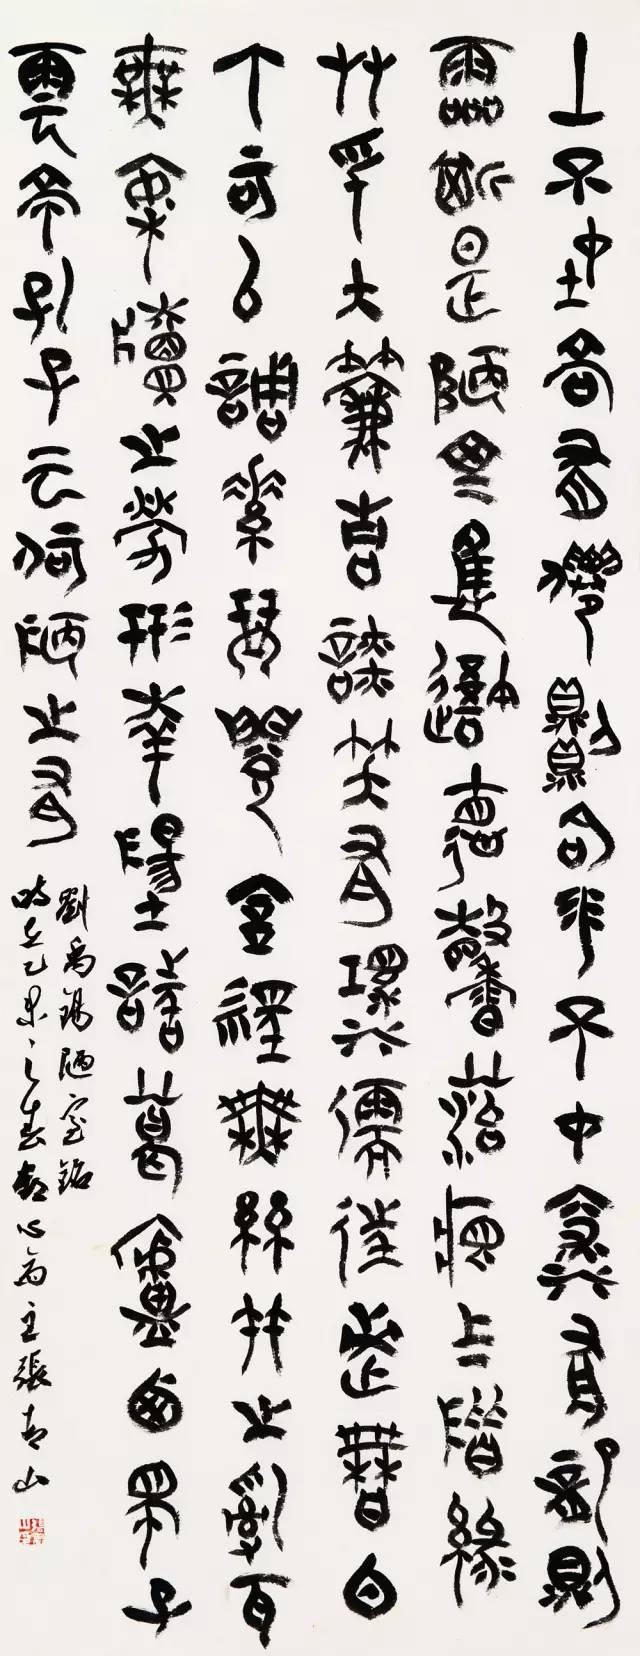 山不在高有僊則名水不在深有龍則
靈斯是陋室惟吾德馨苔痕上階綠
艸色入簾青談笑有鴻儒往來無白
丁可以調素琴閱金經無絲竹之亂耳
無案牘之勞形南陽諸葛廬西蜀子
雲亭孔子云何陋之有
劉禹錫陋室銘
時在乙未之春心齋主張青山